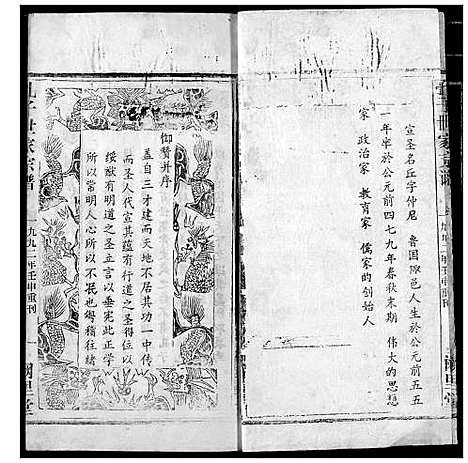 宣圣名丘字仲尼 鲁国陬邑人生於公元前五五
一年卒於公元前四七九年春秋末期 伟大的思想
家 政治家 教育家 儒家的创始人
御赞并序
盖自三才建而天地不居其功一中传
而圣人代宣其蕴有行道之圣得位以
绥猷有明道之圣立言以垂宪此正学
所以常明人心所以不泯也粤稽往绪
孔子世家宗谱
一九九二年壬申重刊
一
阙里堂